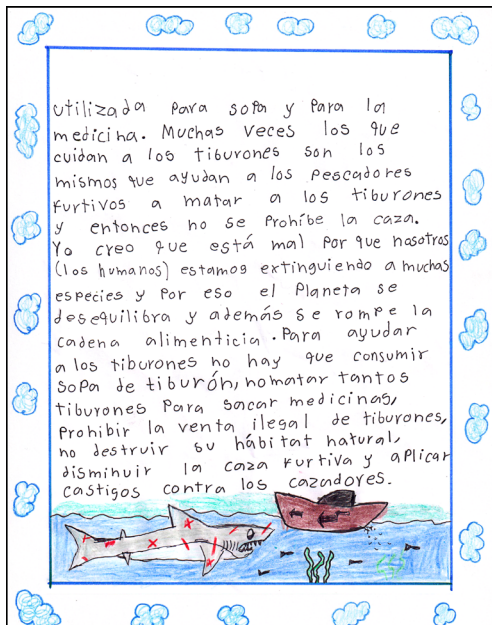 utilizada para sopa y para la
medicina. Muchas veces los que
cuidan a los tiburones son los
mismos que ayudan a los pescadores
furtivos a matar a los tiburones
y entonces no se prohíbe la caza.
Yo creo que está mal por que nosotros
(los humanos) estamos extinguiendo a muchas
especies y por eso el planeta se
desequilibra y además se rompe la
cadena alimenticia. Para ayudar
a los tiburones no hay que consumir
sopa de tiburón, no matar tantos
tiburones para sacar medicinas,
prohibir la venta ilegal de tiburones,
no destruir su hábitat natural,
disminuir la caza furtiva y aplicar
castigos contra los cazadores.